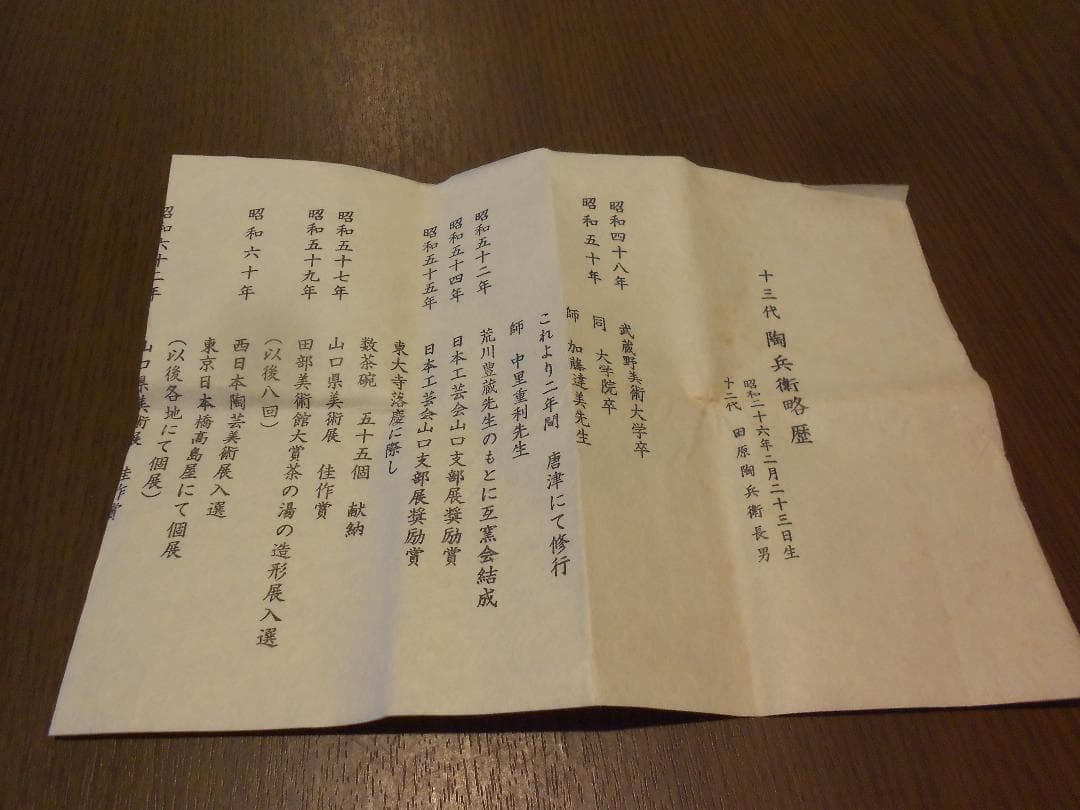 十三代 陶兵衛略歴
昭和二十六年二月二十三日生
十二代 田原陶兵衛長男
昭和四十八年 武蔵野美術大学卒
昭和五十年 同 大学院卒
師 加藤達美先生
これより二年間 唐津にて修行
師 中里重利先生
昭和五十二年 荒川豊蔵先生のもとに互窯会結成
昭和五十四年 日本工芸会山口支部展奨励賞
昭和五十五年 日本工芸会山口支部展奨励賞
東大寺落慶に際し
数茶碗 五十五個 献納
昭和五十七年 山口県美術展 佳作賞
昭和五十九年 田部美術館大賞茶の湯の造形展入選
（以後八回）
昭和六十年 西日本陶芸美術展入選
東京日本橋高島屋にて個展
（以後各地にて個展）
昭和六十二年 山口県美術展 佳作賞